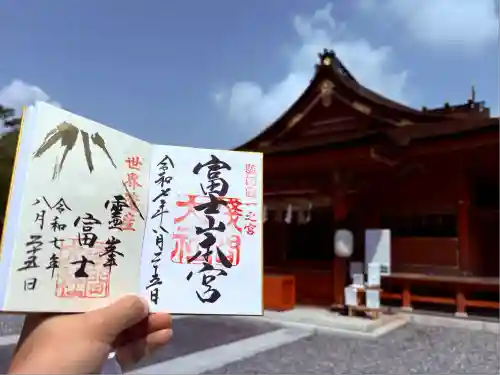 駿河國一之宮
富士山本宮
浅間
大社
令和七年八月二十五日
世界遺産
靈峯
富士
令和七年
八月二十五日